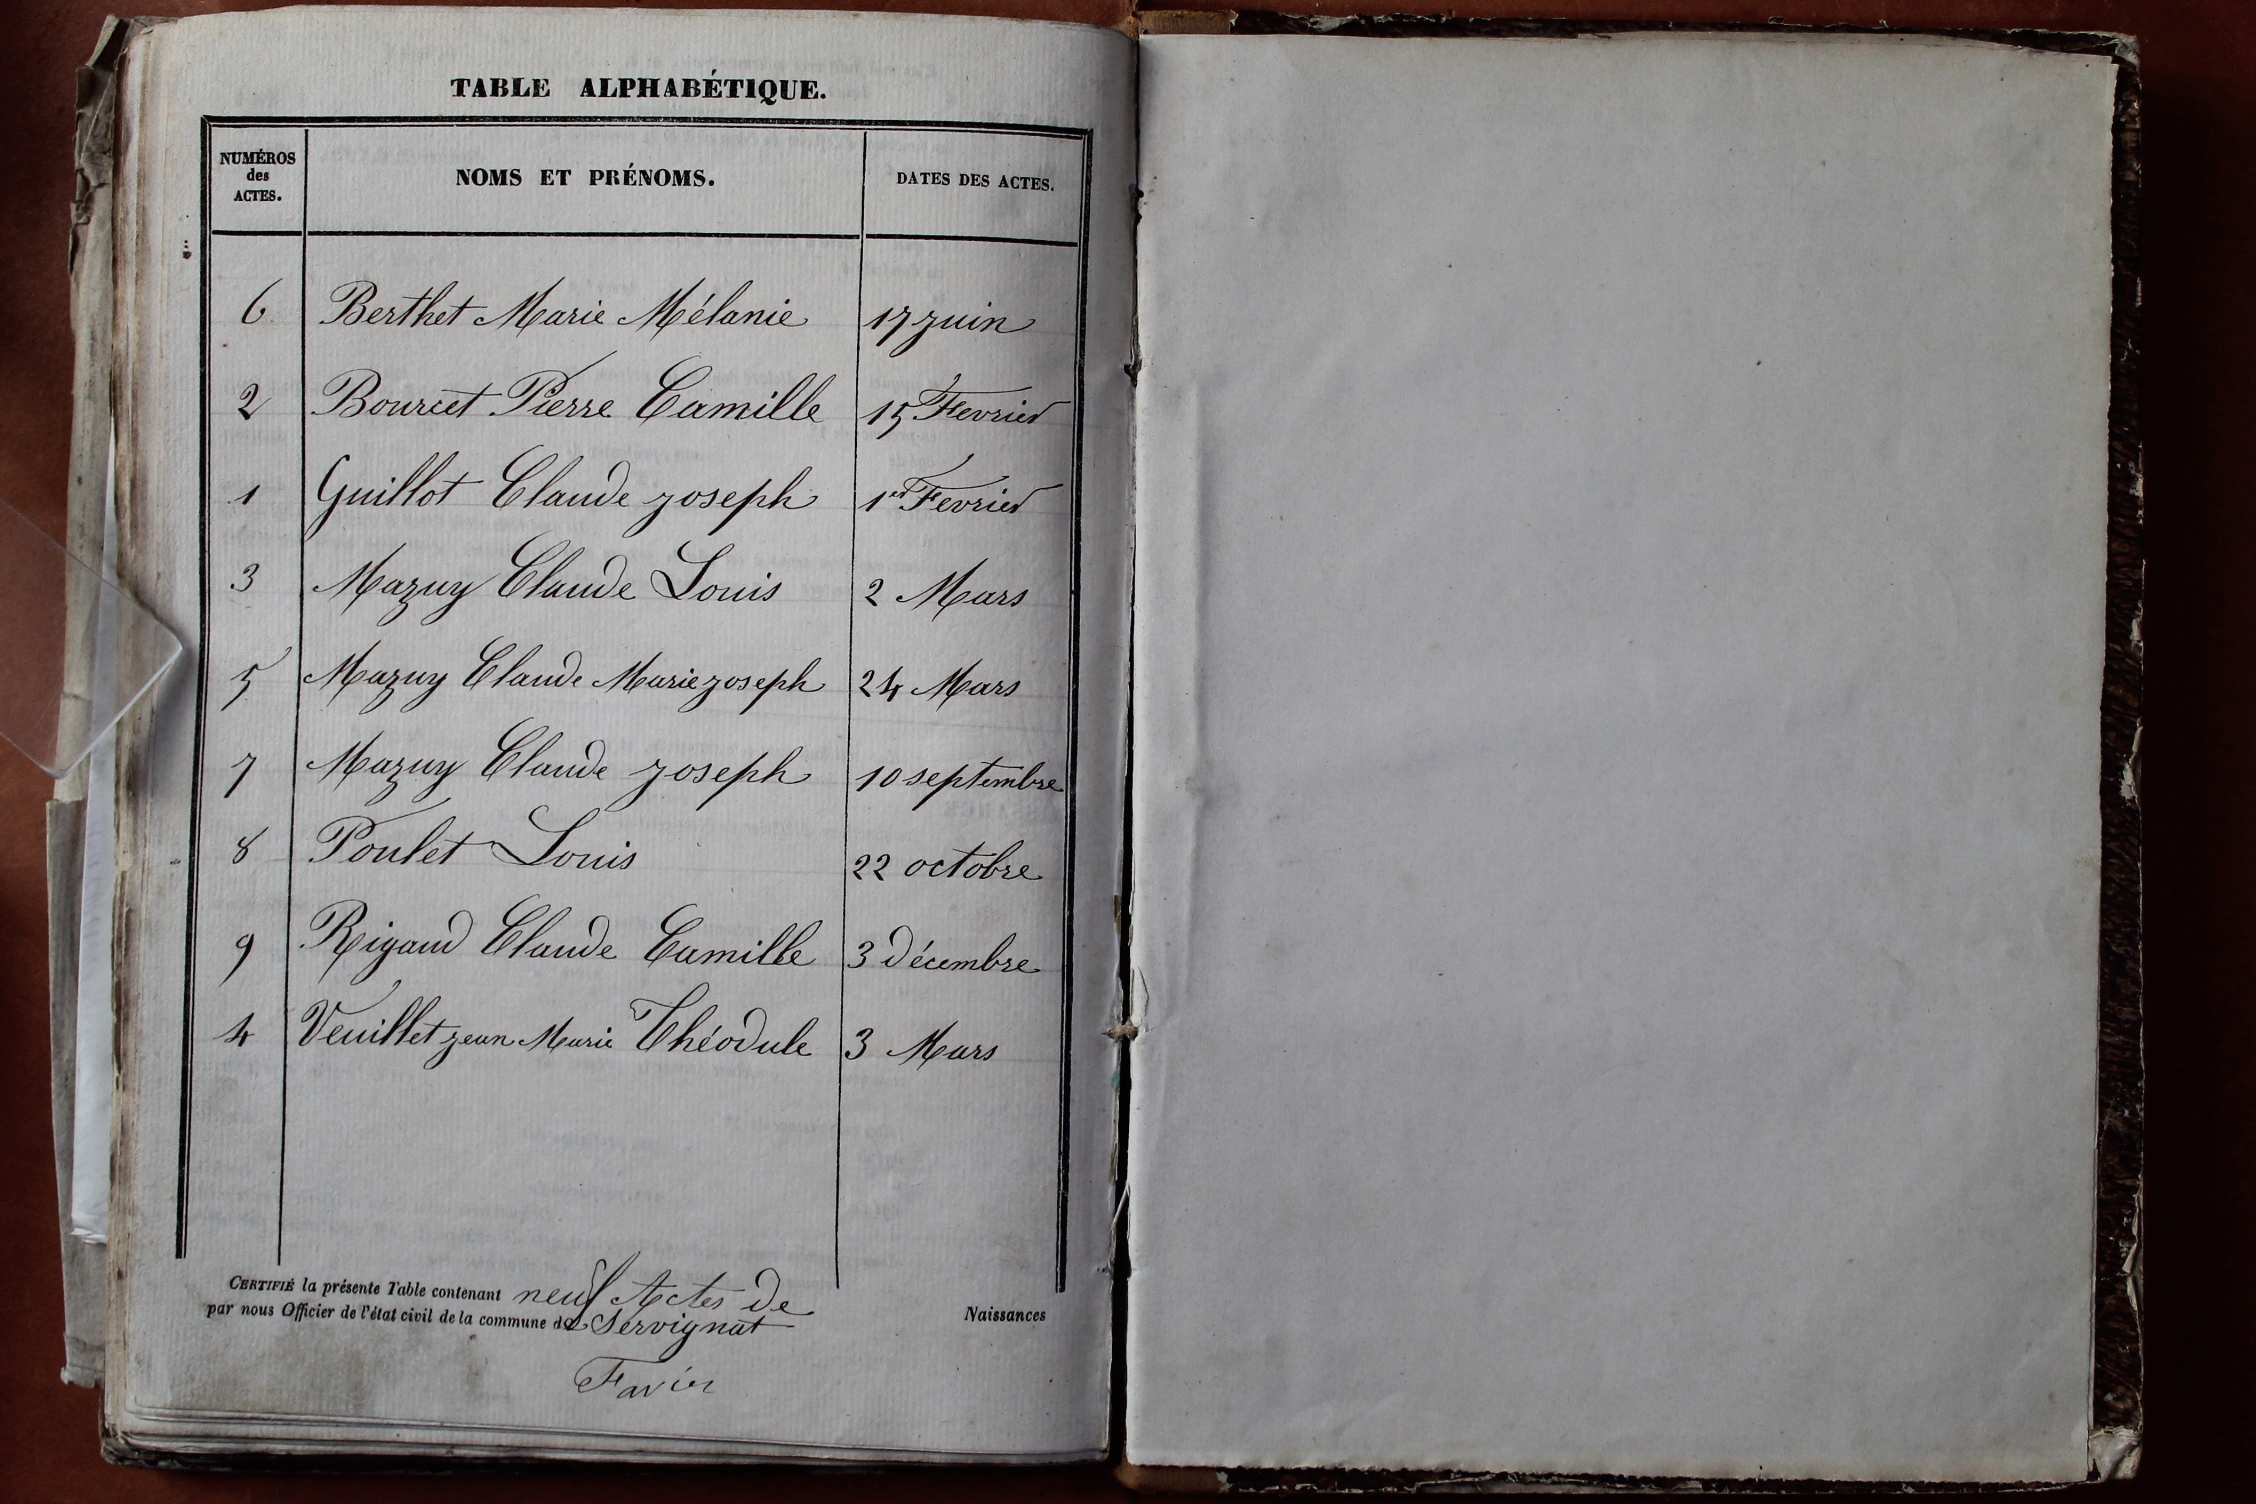 TABLE ALPHABÉTIQUE.
NUMÉROS
des
ACTES.
NOMS ET PRÉNOMS.
DATES DES ACTES.
6 Berthet Marie Mélanie 17 juin
2 Bourcet Pierre Camille 15 Fevrier
1 Guillot Claude joseph 1er Fevrier
3 Mazuy Claude Louis 2 Mars
5 Mazuy Claude Marie joseph 24 Mars
7 Mazuy Claude joseph 10 septembre
8 Poulet Louis 22 octobre
9 Rigaud Claude Camille 3 décembre
4 Veuillet jean Marie Théodule 3 Mars
CERTIFIÉ la présente Table contenant neuf Actes de Naissances
par nous Officier de l'état civil de la commune de Servignat
Favier